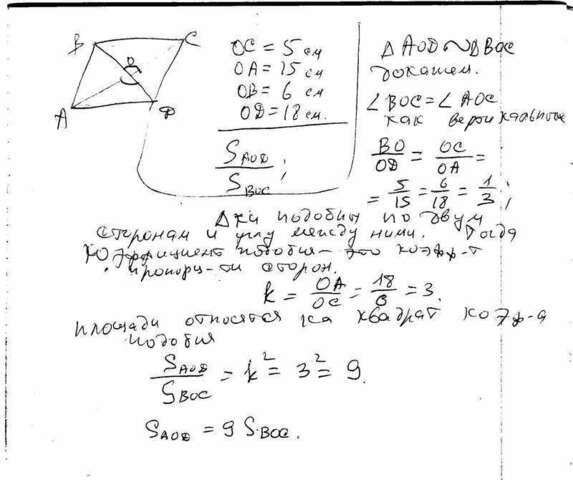 B C
O
A D
OC = 5 см
OA = 15 см
OB = 6 см
OD = 18 см.
S_AOD / S_BOC ;
Δ AOD ~ Δ BOC
докажем.
∠BOC = ∠AOC
как вертикальные
BO / OD = OC / OA =
= 5/15 = 6/18 = 1/3 ;
Δки подобны по двум
сторонам и углу между ними. Тогда
коэффициент подобия – это коэф-т
пропорц-ти сторон.
k = OA / OC = 18 / 6 = 3.
площади относятся ка квадрат коэф-а
подобия
S_AOD / S_BOC = k² = 3² = 9.
S_AOD = 9 S_BOC.